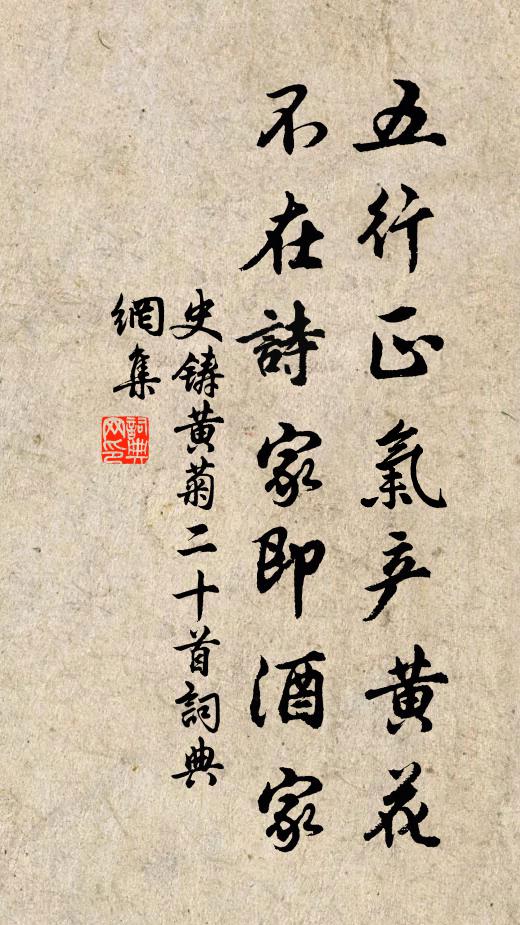 五行正氣产黄花
不在詩家即酒家
史鑄黄菊二十首詞典
網集
詞典网印